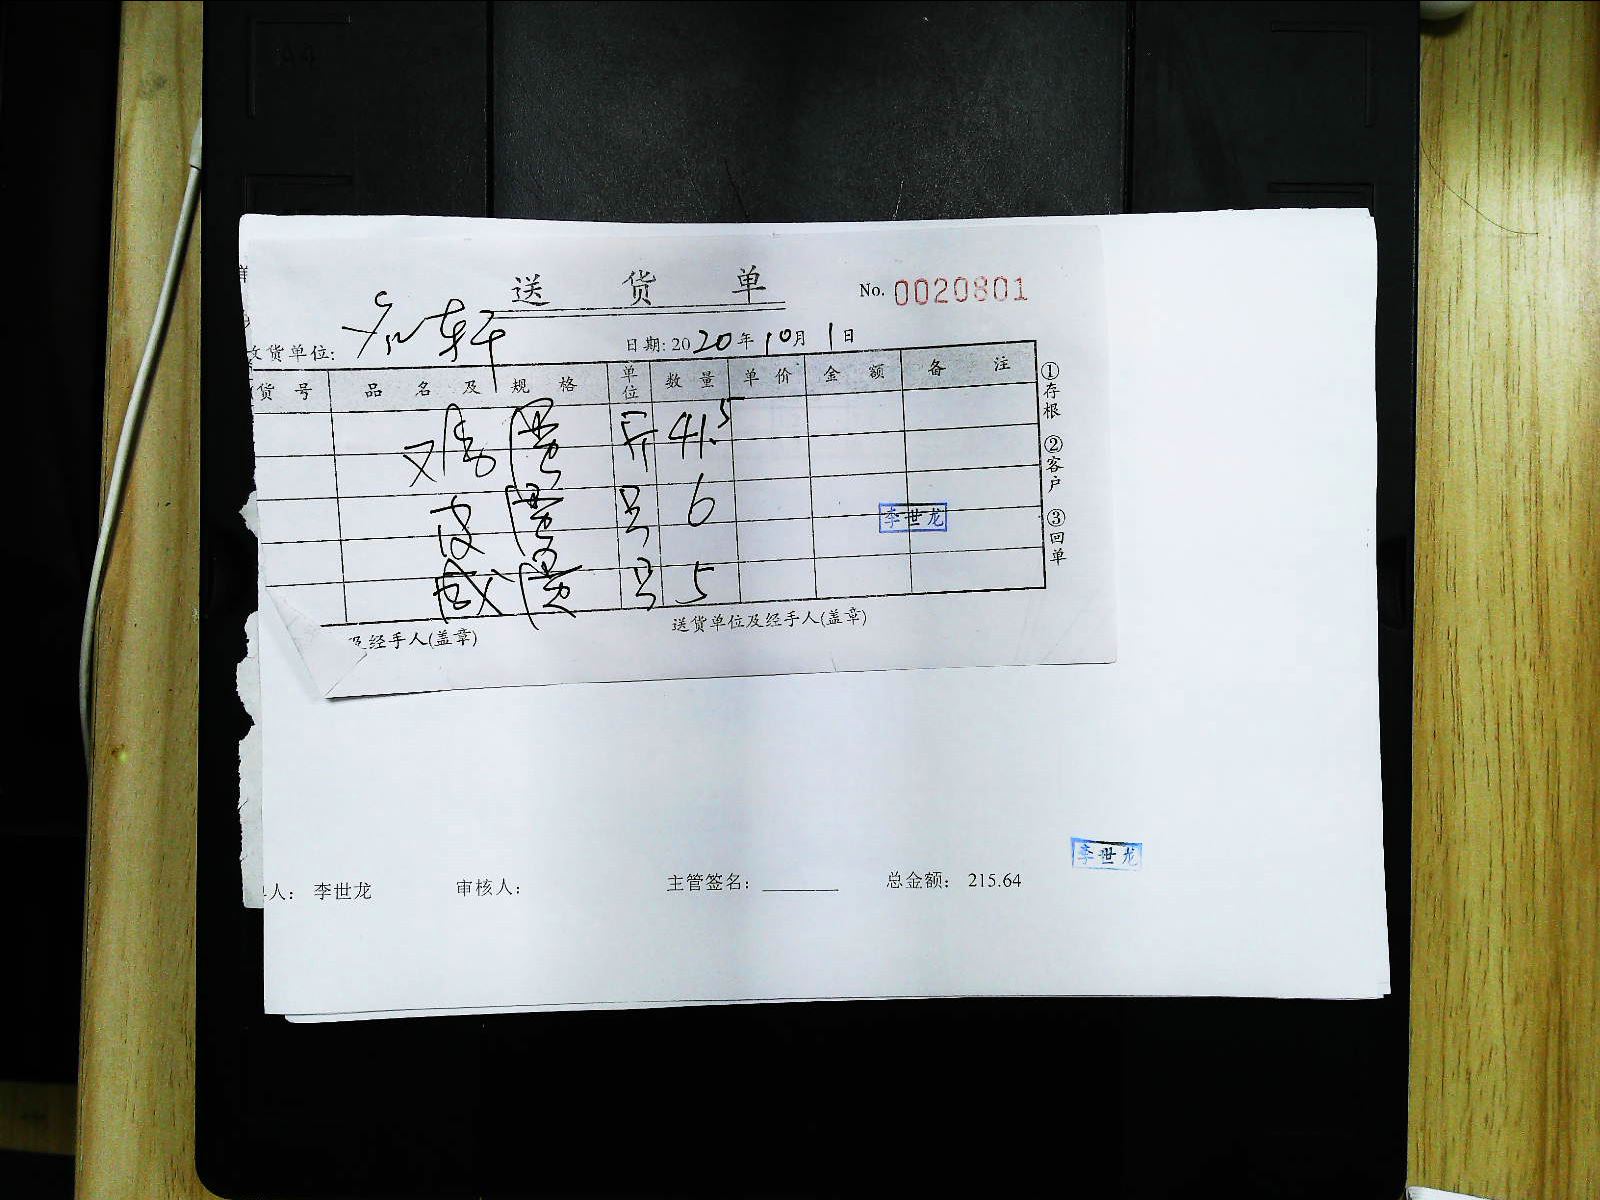 送货单 No. 0020801
收货单位: 轩
日期: 2020年10月1日
货号 品名及规格 单位 数量 单价 金额 备注
鸡蛋 斤 41.5
皮蛋 只 6
咸蛋 只 5
李世龙
①存根 ②客户 ③回单
及经手人(盖章) 送货单位及经手人(盖章)
李世龙
人: 李世龙 审核人: 主管签名: 总金额: 215.64